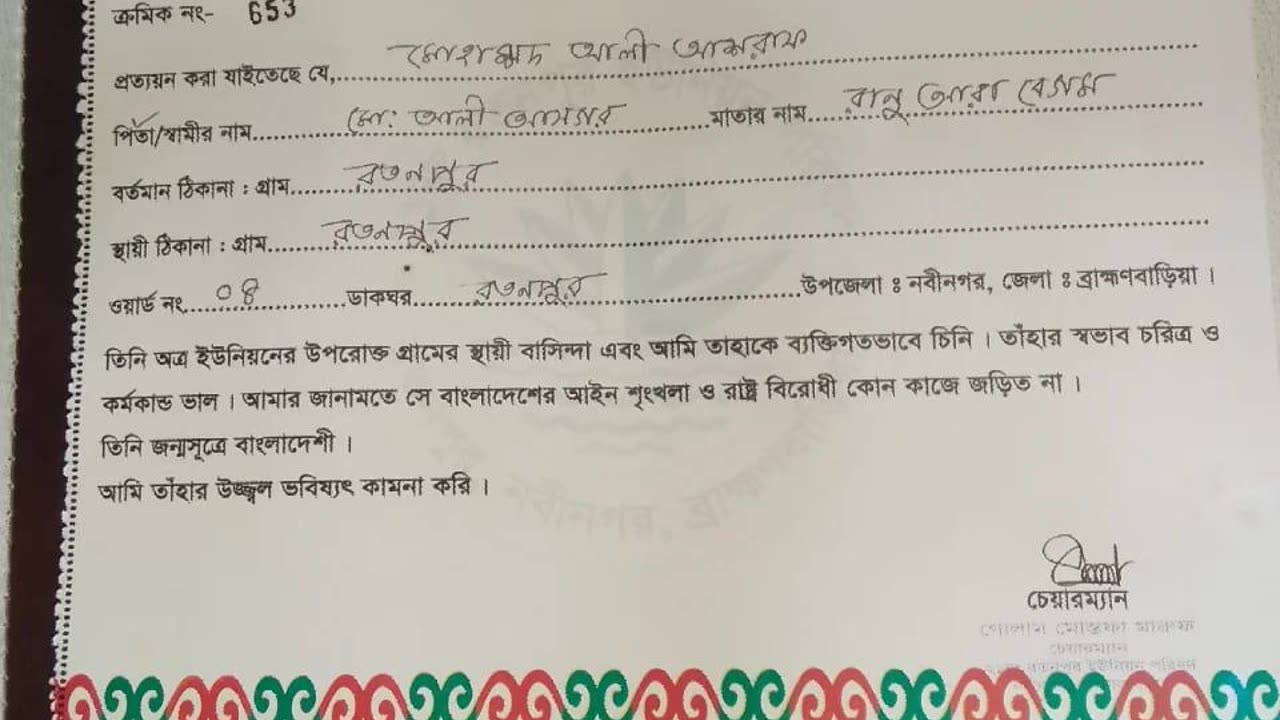 ক্রমিক নং- 653
প্রত্যয়ন করা যাইতেছে যে,..........মোহাম্মদ আলী আশরাফ..........
পিতা/স্বামীর নাম..........মো: আলী আজগর..........মাতার নাম..........বানু আরা বেগম..........
বর্তমান ঠিকানা : গ্রাম..........রতনপুর..........
স্থায়ী ঠিকানা : গ্রাম..........রতনপুর..........
ওয়ার্ড নং..........০৪..........ডাকঘর..........রতনপুর..........উপজেলা ঃ নবীনগর, জেলা ঃ ব্রাহ্মণবাড়িয়া ।
তিনি অত্র ইউনিয়নের উপরোক্ত গ্রামের স্থায়ী বাসিন্দা এবং আমি তাহাকে ব্যক্তিগতভাবে চিনি । তাঁহার স্বভাব চরিত্র ও
কর্মকান্ড ভাল । আমার জানামতে সে বাংলাদেশের আইন শৃংখলা ও রাষ্ট্র বিরোধী কোন কাজে জড়িত না ।
তিনি জন্মসূত্রে বাংলাদেশী ।
আমি তাঁহার উজ্জ্বল ভবিষ্যৎ কামনা করি ।
নবীনগর, ব্রাহ্মণ
চেয়ারম্যান
গোলাম মোস্তফা মারুফ
চেয়ারম্যান
রতনপুর ইউনিয়ন পরিষদ